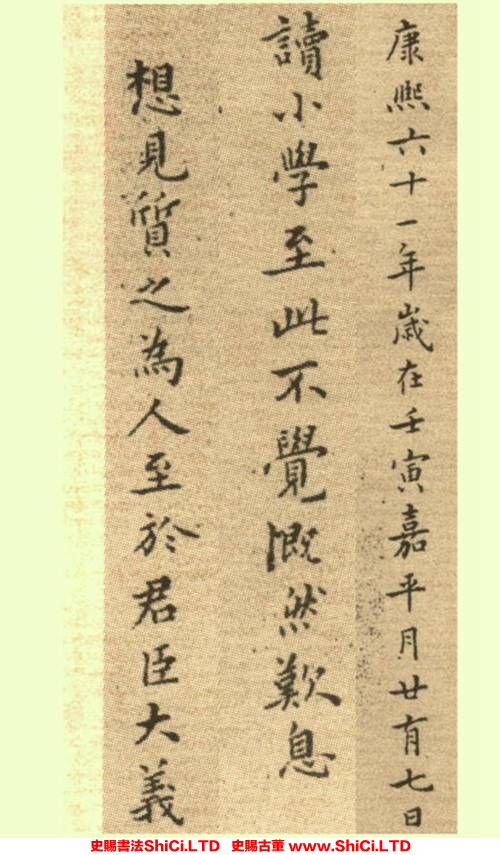 康熙六十一年歲在壬寅嘉平月廿有七日
讀小學至此不覺慨然歎息
想見質之為人至於君臣大義
史賜書法ShiCi.LTD 史賜古董 www.ShiCi.LTD